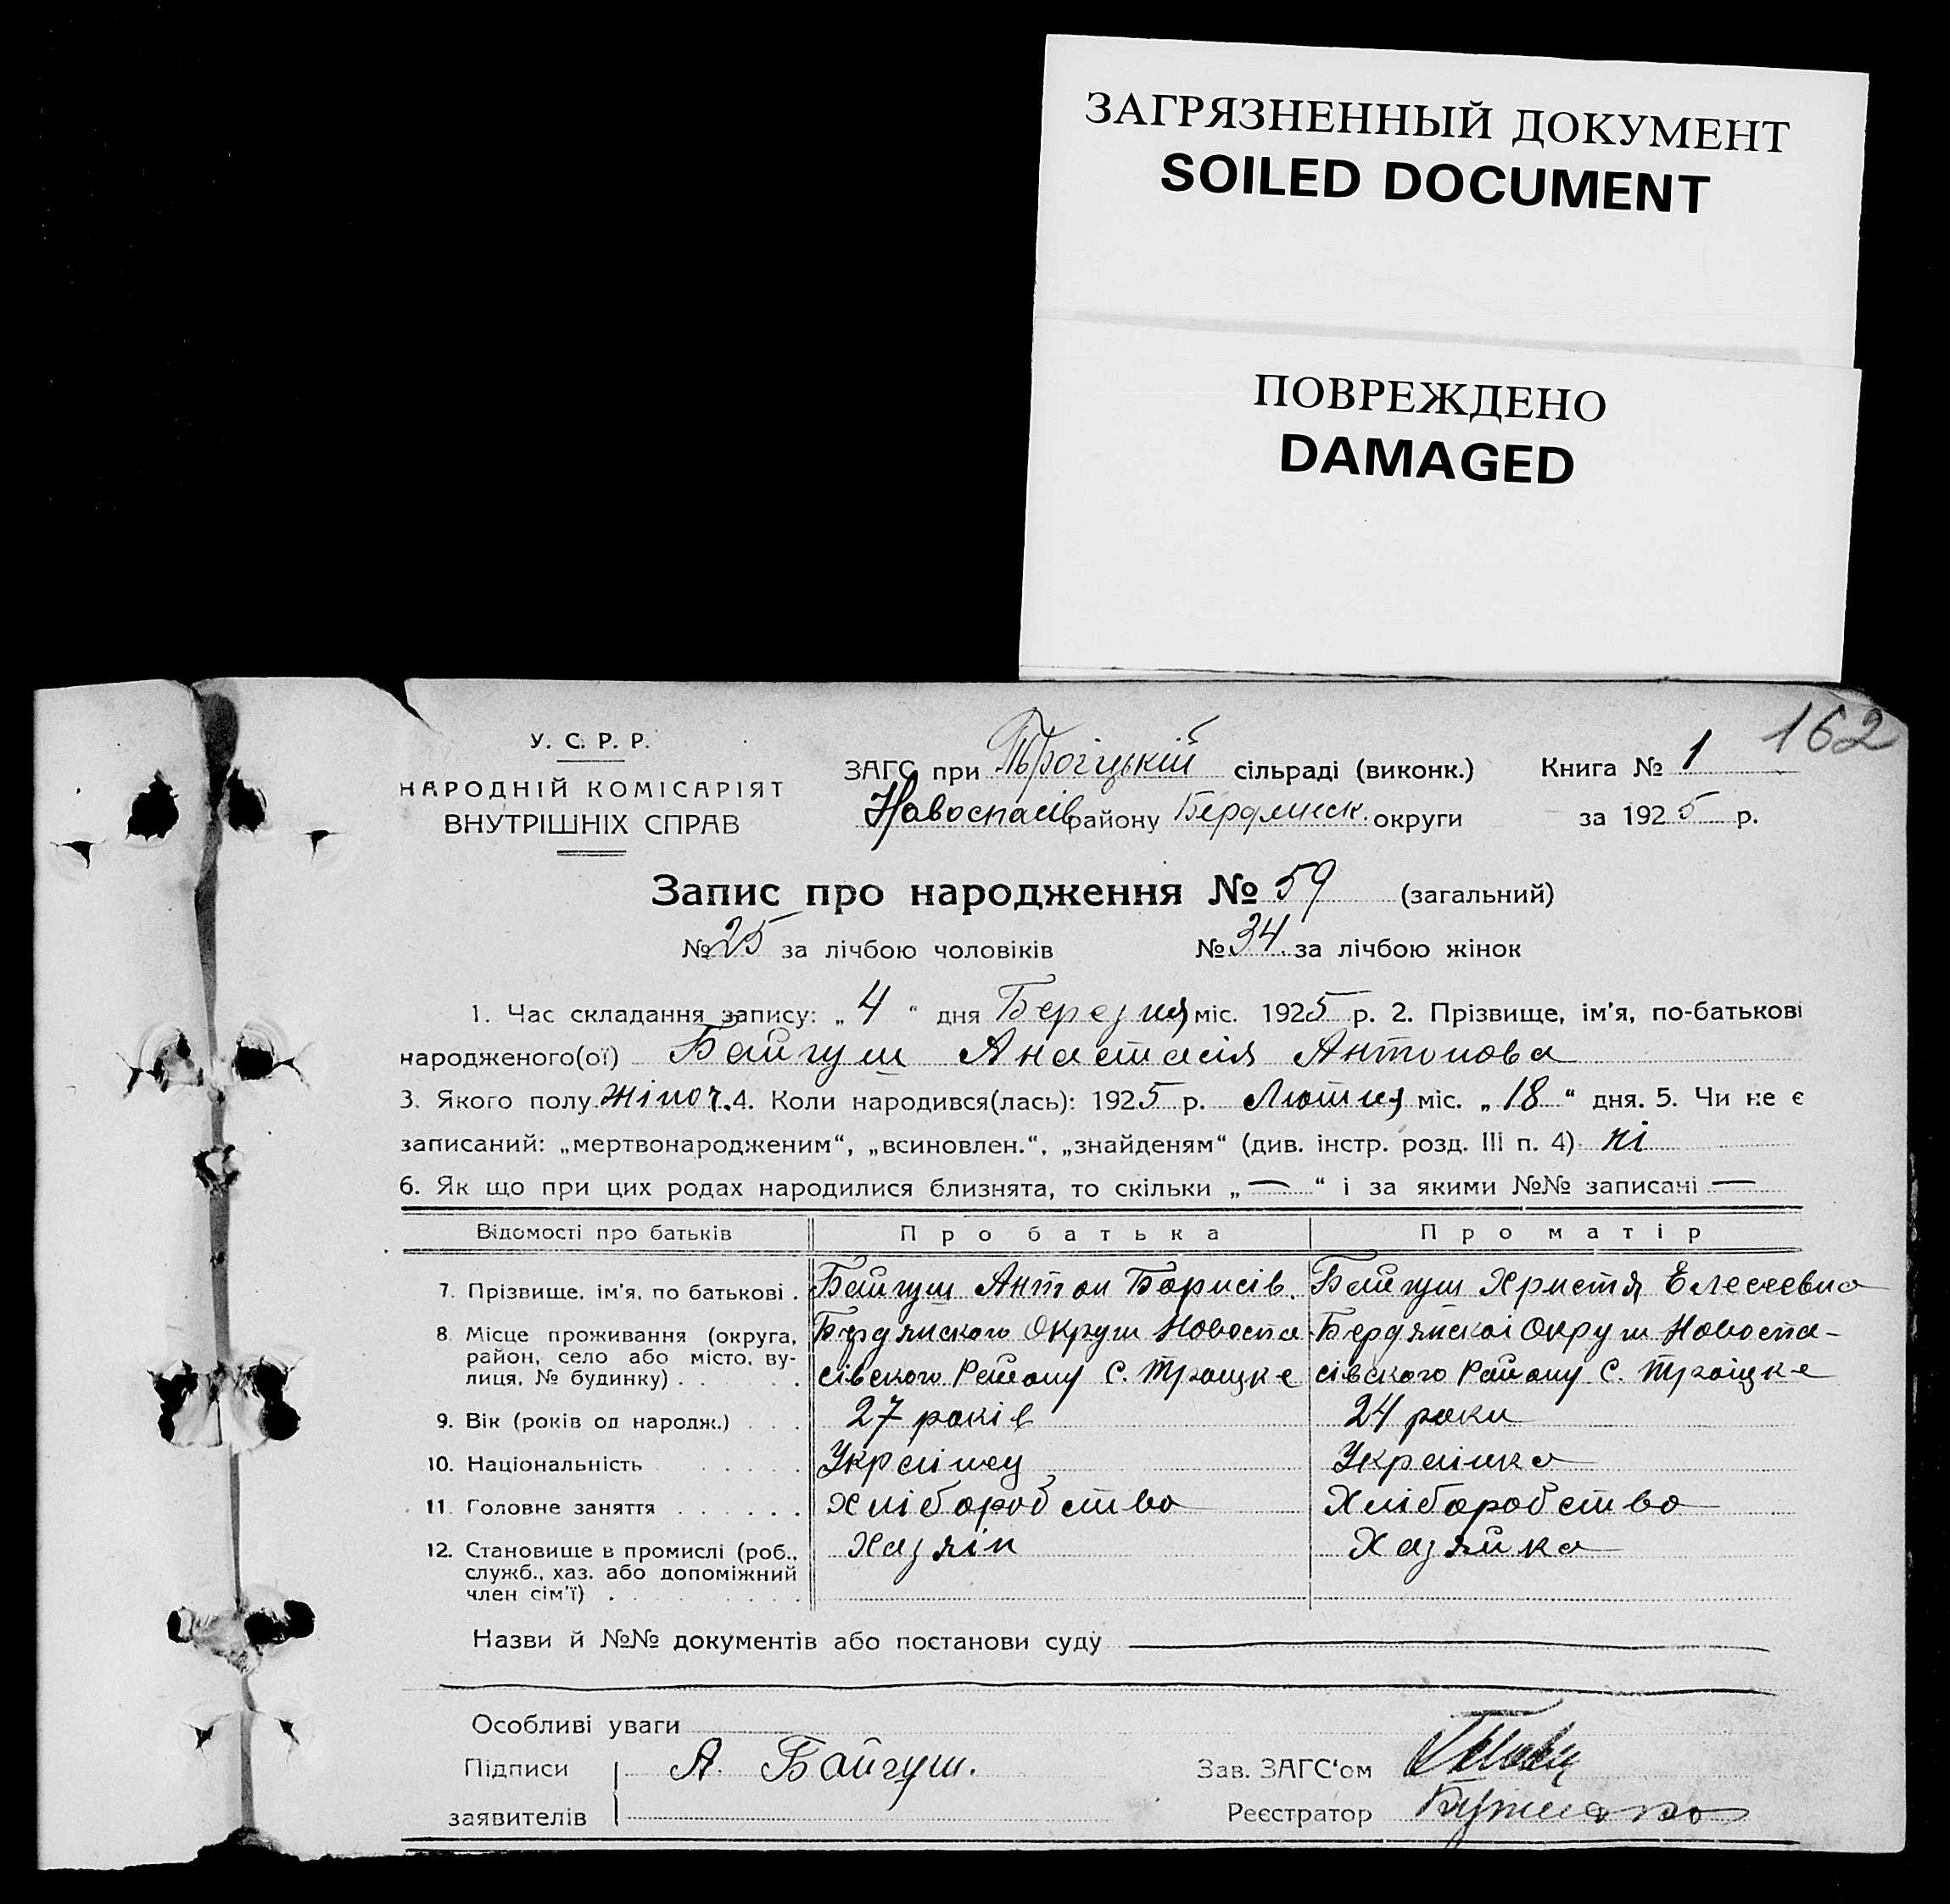 ЗАГРЯЗНЕННЫЙ ДОКУМЕНТ
SOILED DOCUMENT
ПОВРЕЖДЕНО
DAMAGED
162
У. С. Р. Р.
НАРОДНІЙ КОМІСАРІЯТ
ВНУТРІШНІХ СПРАВ
ЗАГС при Троіцькій сільраді (виконк.) Книга № 1
Новоспасів району Бердянськ. округи за 1925 р.
Запис про народження № 59 (загальний)
№ 25 за лічбою чоловіків № 34 за лічбою жінок
1. Час складання запису: „ 4 “ дня Березня міс. 1925 р. 2. Прізвище, ім'я, по-батькові
народженого(ої) Байгуш Анастасія Антонова
3. Якого полу жіноч. 4. Коли народився(лась): 1925 р. Лютня міс. „ 18 “ дня. 5. Чи не є
записаний: „мертвонародженим“, „всиновлен.“, „знайденям“ (див. інстр. розд. III п. 4) ні
6. Як що при цих родах народилися близнята, то скільки „ — “ і за якими №№ записані —
Відомості про батьків Про батька Про матір
7. Прізвище, ім'я, по батькові . Байгуш Антон Борисів. Байгуш Христя Елесеевна
8 Місце проживання (округа, район, село або місто, вулиця, № будинку) . Бердянского Округи Новоспа- Бердянскоі Округи Новоспа-
сівского Району С. Троцке сівского Району С. Троіцке
9. Вік (років од народж.) . 27 років 24 роки
10. Національність Українец Українка
11. Головне заняття Хліборобство Хліборобство
12. Становище в промислі (роб., служб., хаз. або допоміжний член сім'ї) . Хазяін Хазяйка
Назви й №№ документів або постанови суду
Особливі уваги
Підписи А. Байгуш. Зав. ЗАГС'ом
заявителів Реєстратор